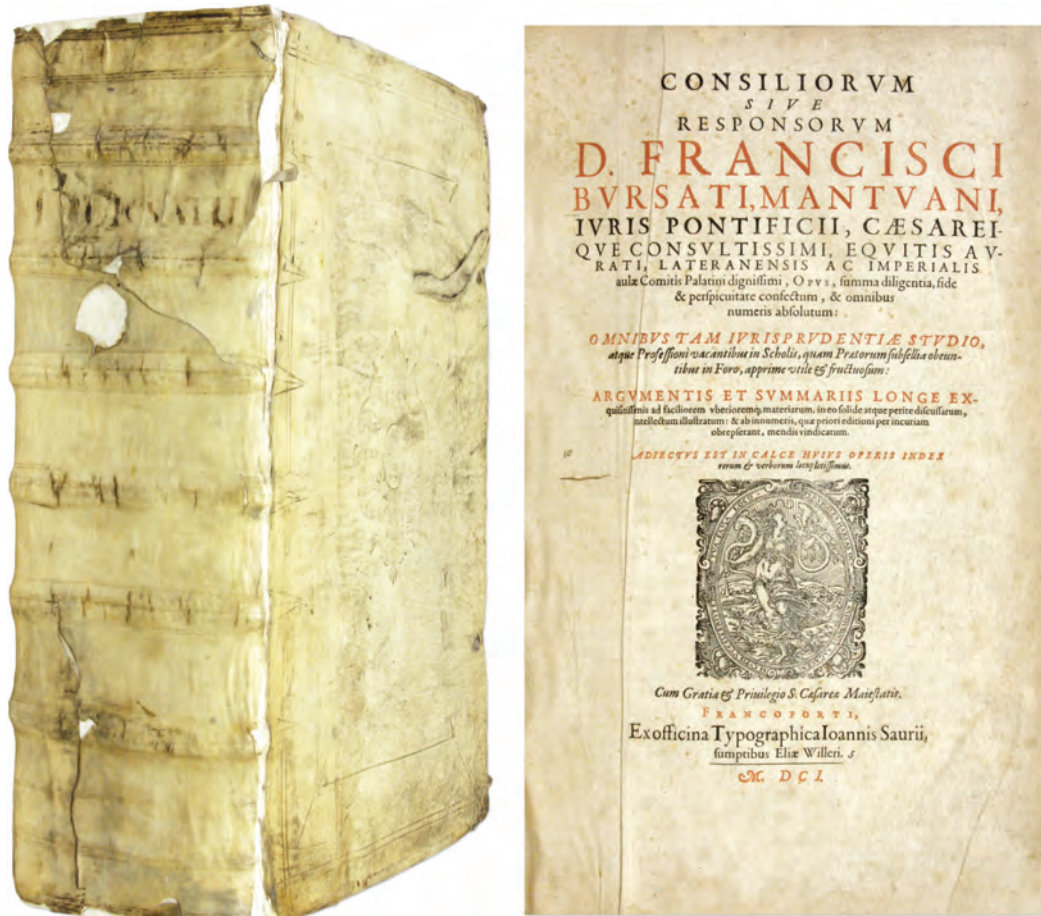 CONSILIORVM
SIVE
RESPONSORVM
D. FRANCISCI
BVRSATI, MANTVANI,
IVRIS PONTIFICII, CÆSAREI-
QVE CONSVLTISSIMI, EQVITIS AV-
RATI, LATERANENSIS AC IMPERIALIS
aulæ Comitis Palatini dignissimi, OPVS, summa diligentia, fide
& perspicuitate confectum, & omnibus
numeris absolutum:
OMNIBVS TAM IVRISPRVDENTIÆ STVDIO,
atque Professioni vacantibus in Scholis, quam Prætorum subsellia obeun-
tibus in Foro, apprime vtile & fructuosum:
ARGVMENTIS ET SVMMARIIS LONGE EX-
quisitissimis ad faciliorem vberioremq; materiarum, in eo solide atque perite discussarum,
intellectum illustratum: & ab innumeris, quæ priori editioni per incuriam
obrepserant, mendis vindicatum.
ADIECTVS EST IN CALCE HVIVS OPERIS INDEX
rerum & verborum locupletissimus.
Cum Gratia & Priuilegio S. Cæsareæ Maiestatis.
FRANCOFORTI,
Ex officina Typographica Ioannis Saurii,
sumptibus Eliæ Willeri. 5
M. DCI.